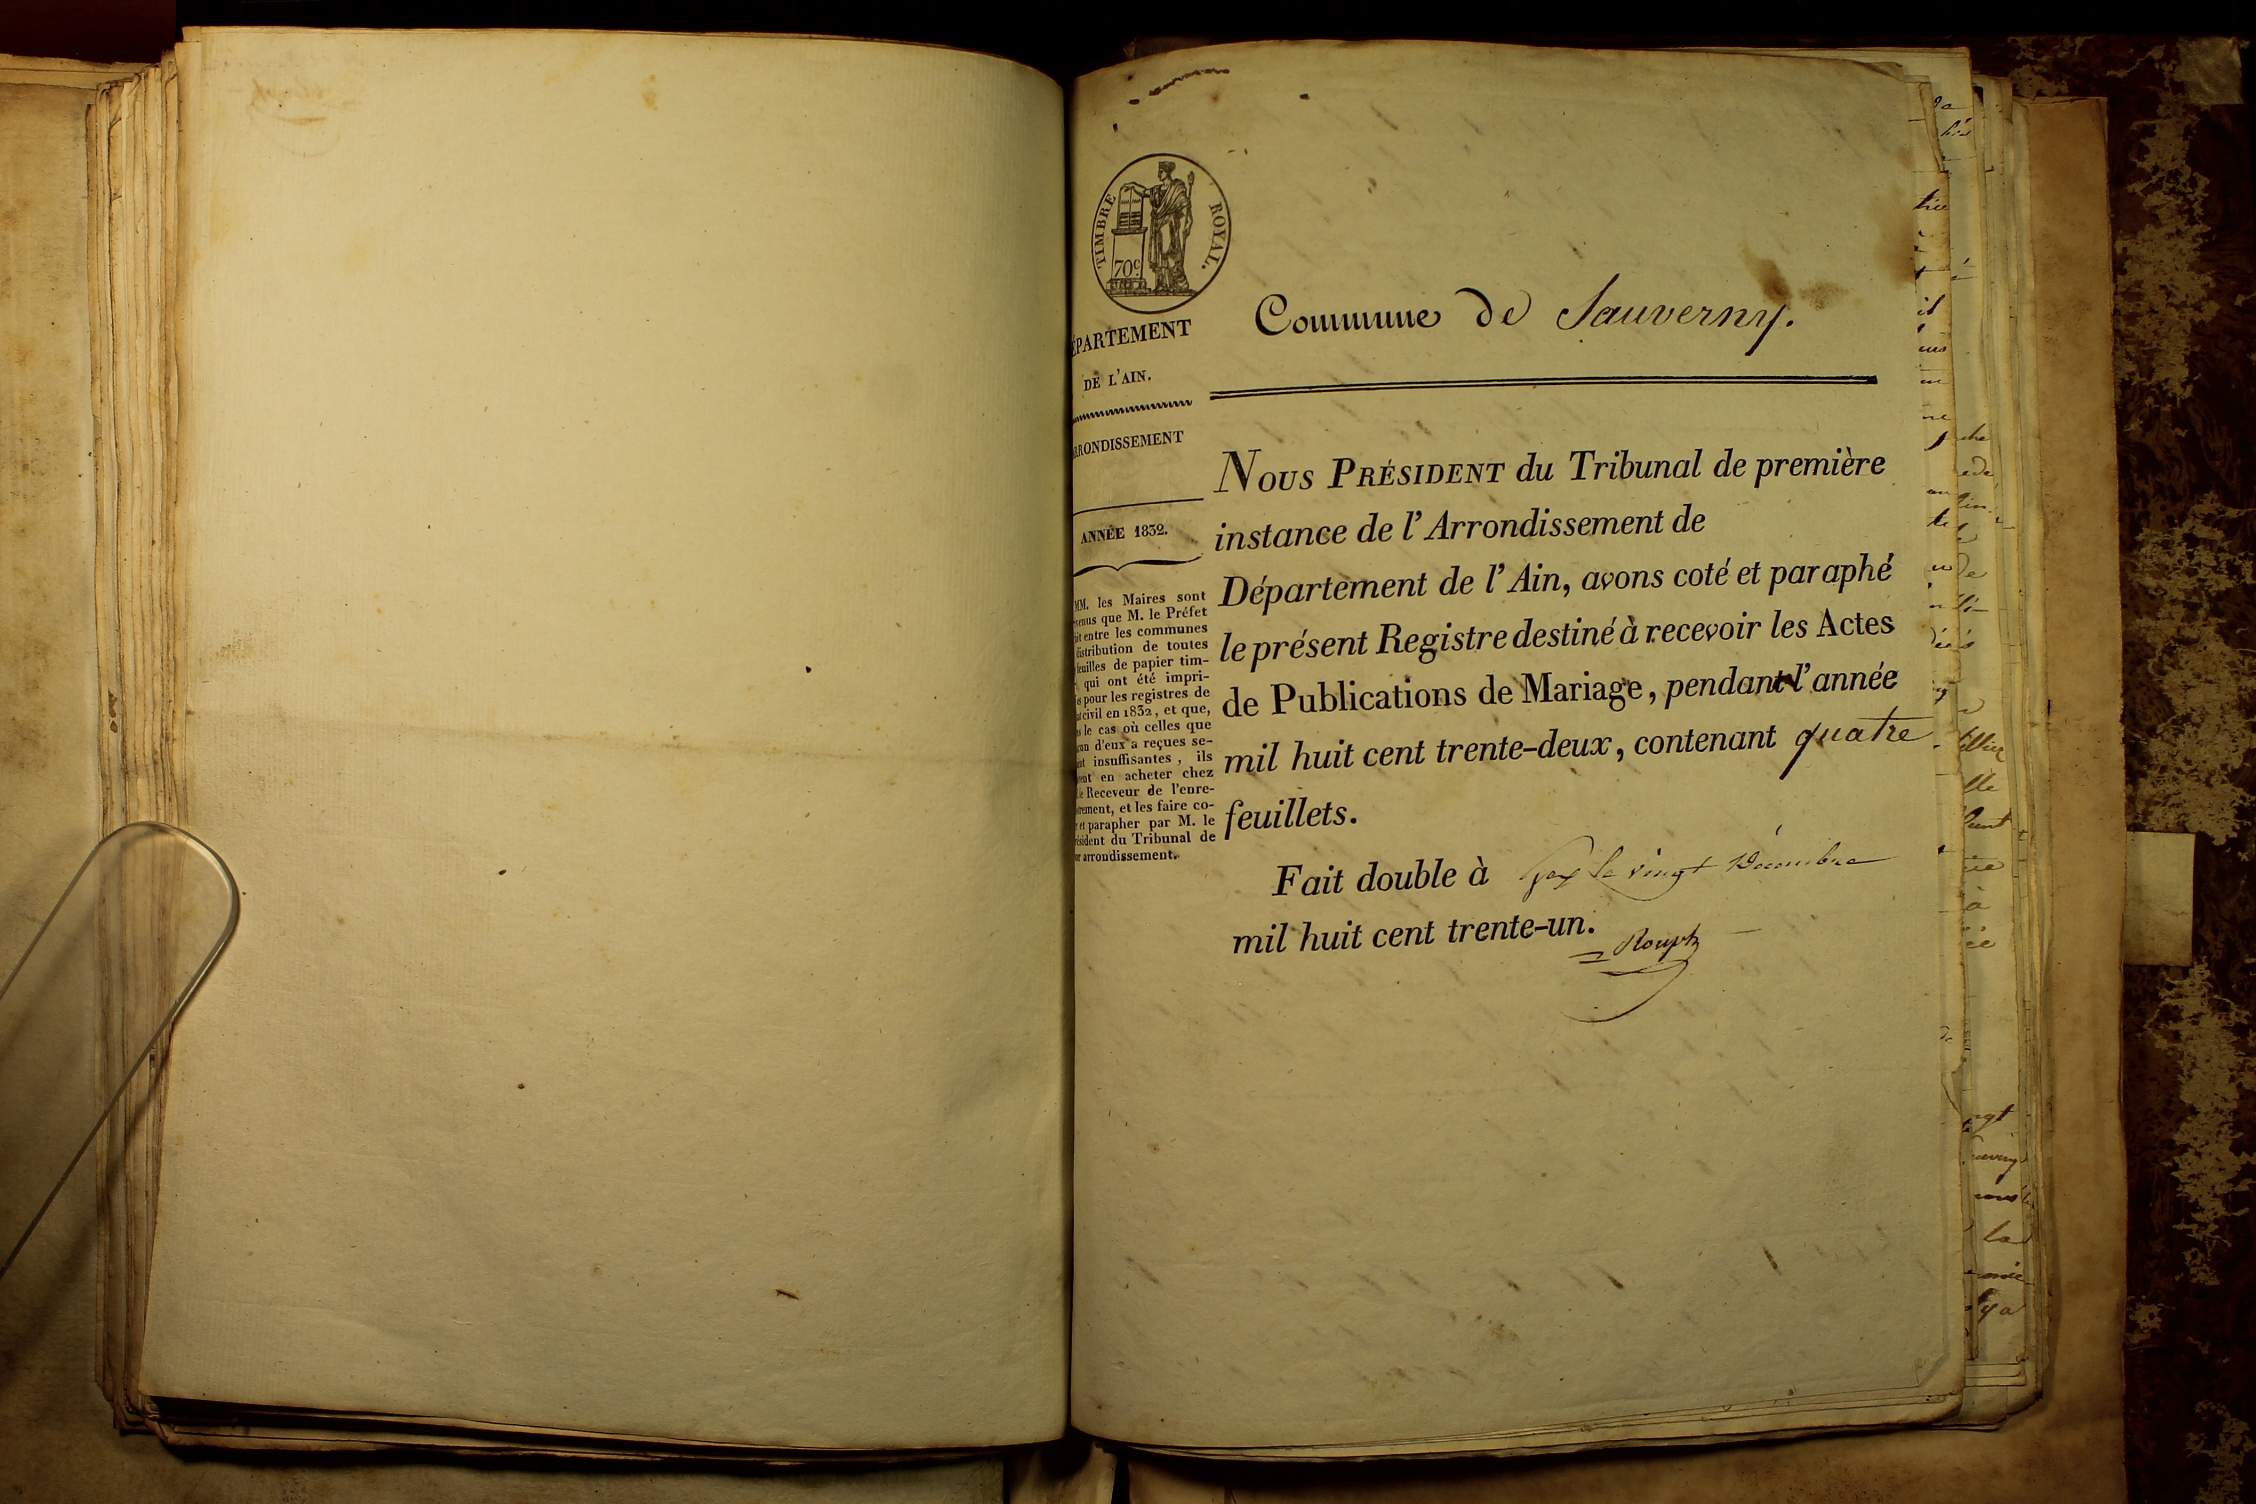 TIMBRE ROYAL.
70c.
ÉPARTEMENT
DE L'AIN.
RRONDISSEMENT
ANNÉE 1832.
MM. les Maires sont
venus que M. le Préfet
it entre les communes
distribution de toutes
feuilles de papier tim-
qui ont été impri-
s pour les registres de
at civil en 1832, et que,
s le cas où celles que
cun d'eux a reçues se-
nt insuffisantes, ils
vent en acheter chez
le Receveur de l'enre-
trement, et les faire co-
r et parapher par M. le
résident du Tribunal de
ur arrondissement.
Commune de Sauverny.
NOUS PRÉSIDENT du Tribunal de première
instance de l'Arrondissement de
Département de l'Ain, avons coté et paraphé
le présent Registre destiné à recevoir les Actes
de Publications de Mariage, pendant l'année
mil huit cent trente-deux, contenant quatre
feuillets.
Fait double à Gex le vingt Décembre
mil huit cent trente-un.